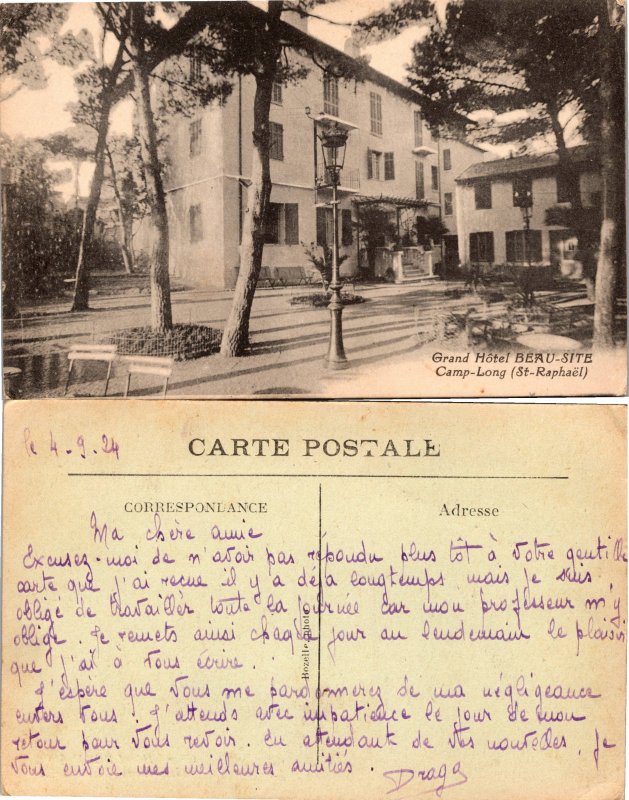 Grand Hôtel BEAU-SITE
Camp-Long (St-Raphaël)
le 4-9-24
CARTE POSTALE
CORRESPONDANCE
Adresse
Ma chère amie
Excusez-moi de n'avoir pas répondu plus tôt à votre gentille
carte que j'ai reçue il y a déjà longtemps mais je suis
obligé de travailler toute la journée car mon professeur m'y
oblige. Je remets ainsi chaque jour au lendemain le plaisir
que j'ai à vous écrire.
J'espère que vous me pardonnerez de ma négligeance
envers vous. J'attends avec impatience le jour de mon
retour pour vous revoir. En attendant de vos nouvelles, je
vous envoie mes meilleures amitiés.